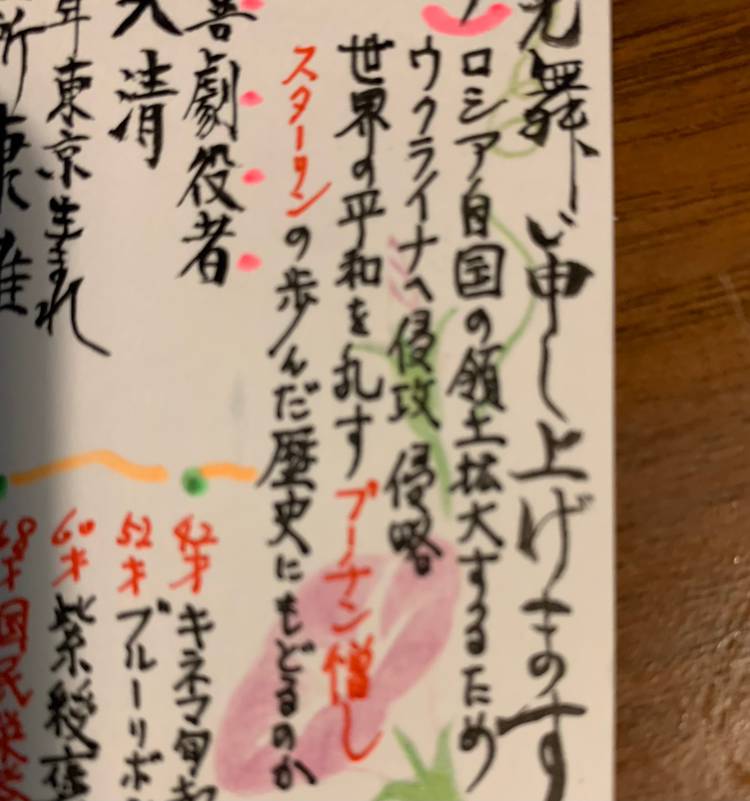 舞い申し上げます
ロシア自国の領土拡大するため
ウクライナへ侵攻 侵略
世界の平和を乱す プーチン憎し
スターリンの歩んだ歴史にもどるのか
喜劇役者
清
年東京生まれ
42才 キネマ旬
52才 ブルーリボ
60才 紫綬
68才 国民栄